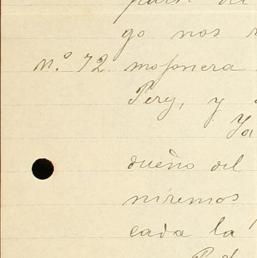 go nos
N.º 72 mojonera
Pery, y
Ya
dueño del
miremos
cada la